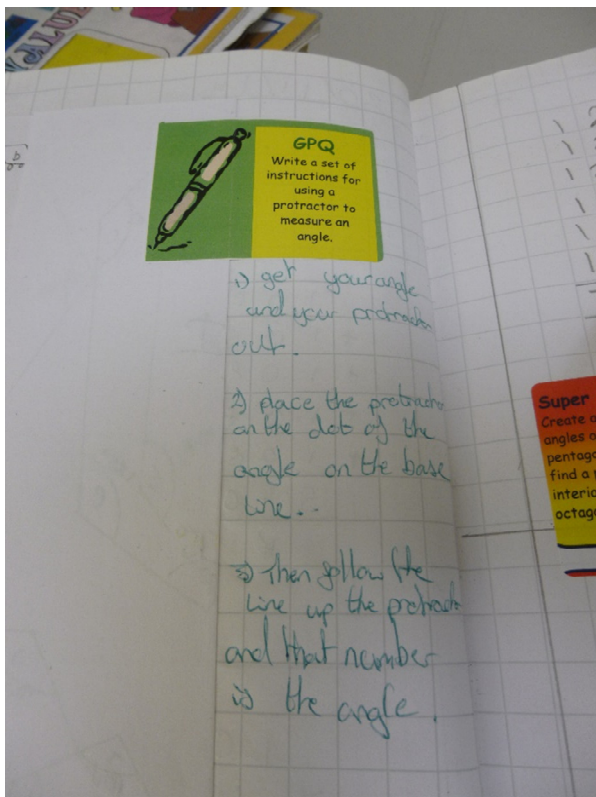 GPQ
Write a set of
instructions for
using a
protractor to
measure an
angle.
1) get your angle
and your protractor
out.
2) place the protractor
on the dot of the
angle on the base
line..
3) Then follow the
line up the protractor
and that number
is the angle.
Super
Create a
angles o
pentago
find a
interio
octago